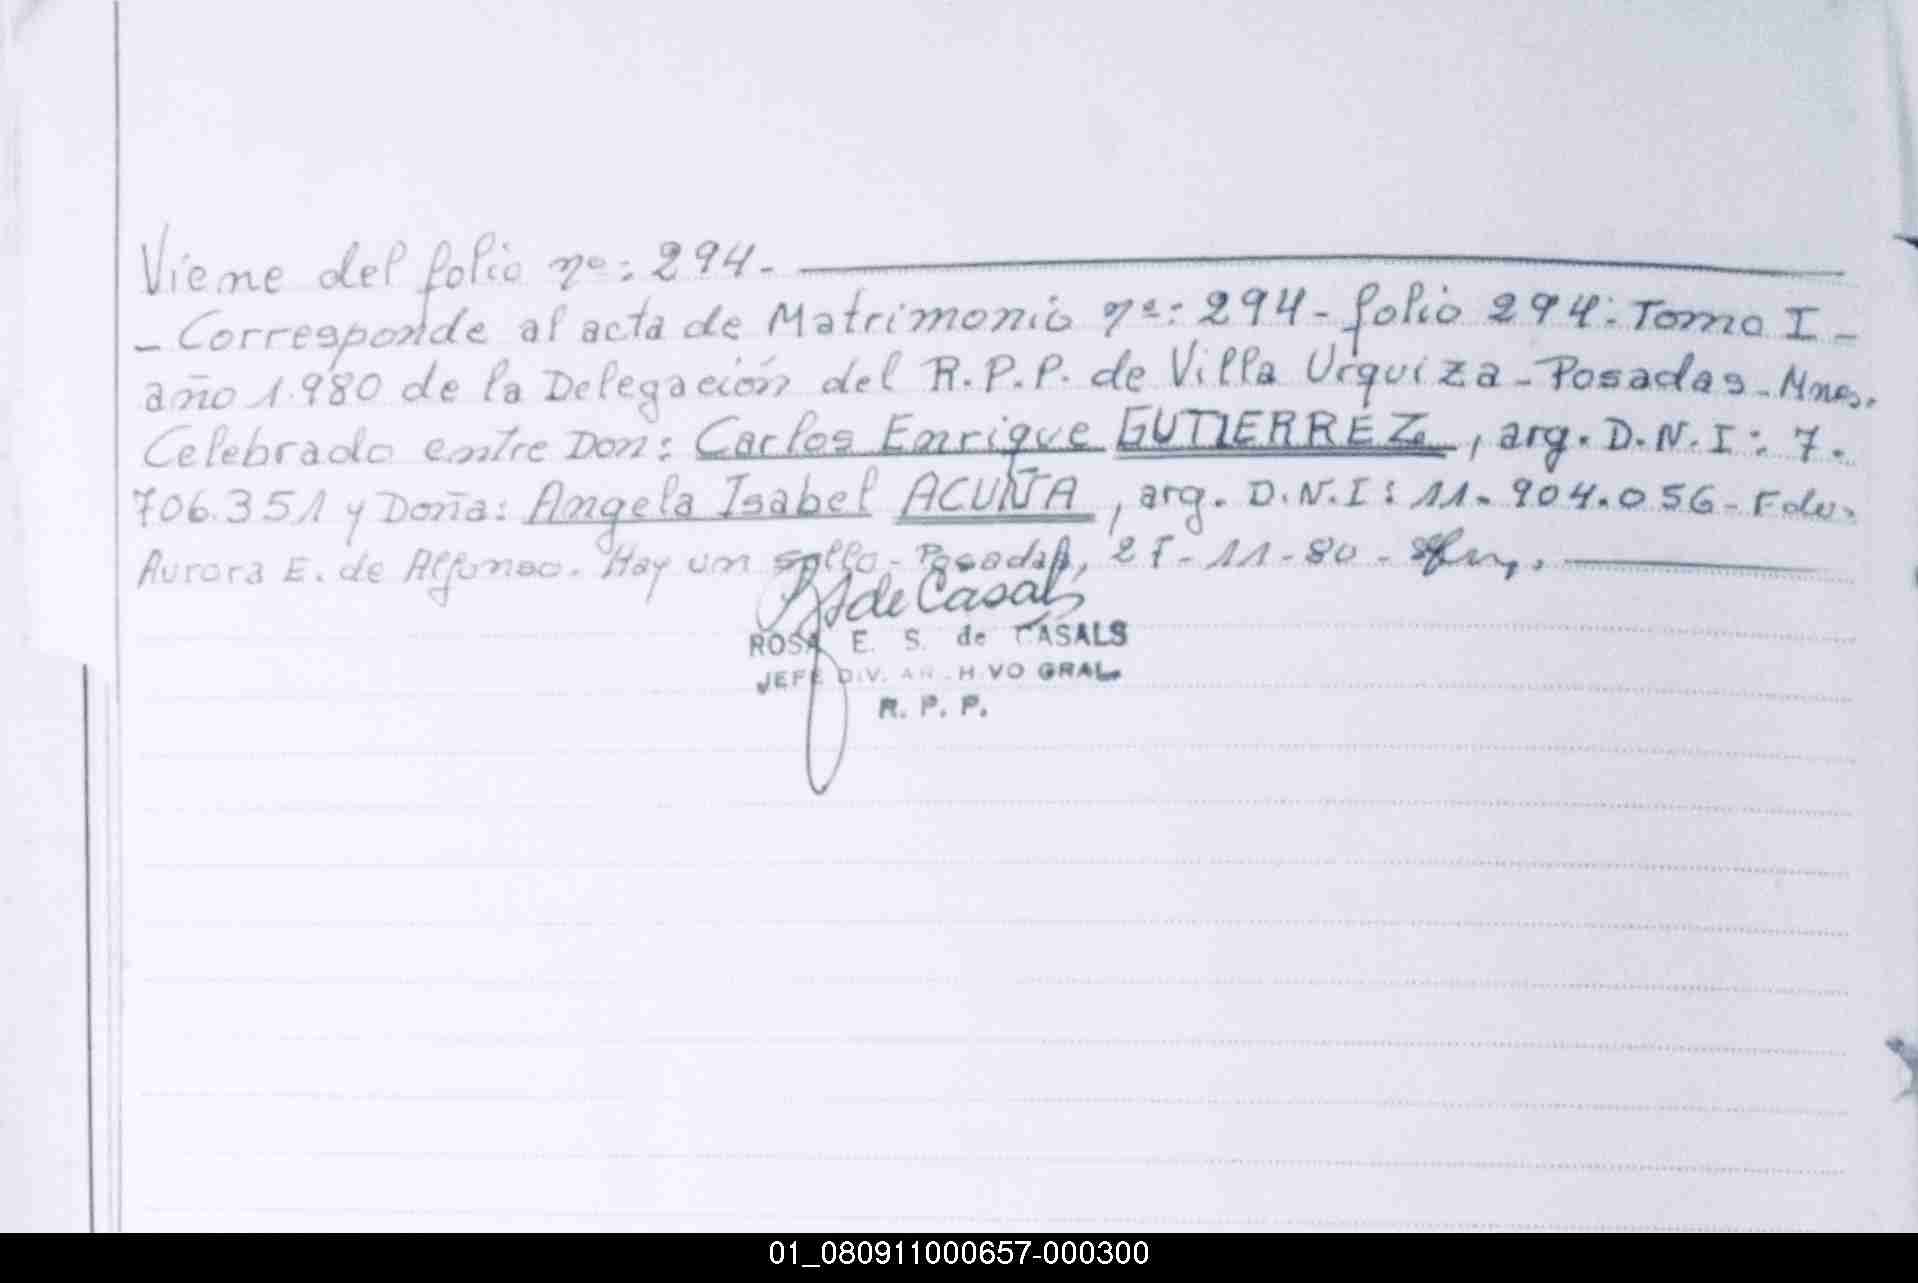 Viene del folio nº: 294.
- Corresponde al acta de Matrimonio nº: 294 - folio 294: Tomo I -
año 1.980 de la Delegación del R.P.P. de Villa Urquiza - Posadas - Mnes.
Celebrado entre Don: Carlos Enrique GUTIERREZ, arg. D.N.I: 7.
706.351 y Doña: Angela Isabel ACUÑA, arg. D.N.I: 11.904.056 - Fdo.
Aurora E. de Alfonso. Hay un sello - Posadas, 27-11-80 -
de Casals
ROSA E. S. de CASALS
JEFE DIV. ARCHIVO GRAL.
R. P. P.
01_080911000657-000300